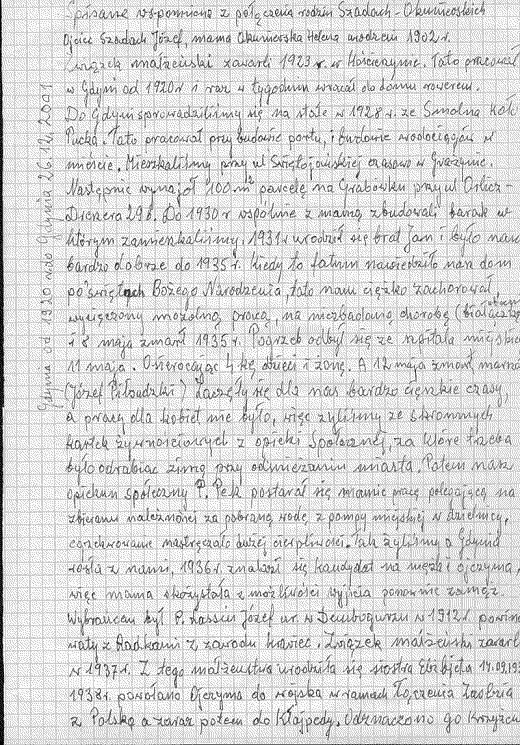 Spisane wspomnienia z połączenia rodzin Szadach - Okuniewskich
Ojciec Szadach Józef, mama Okuniewska Helena urodzeni 1902 r.
Związek małżeński zawarli 1923 r. w Tato pracował
w Gdyni od 1920 r 1 raz w tygodniu wracał do domu rowerem.
Do Gdyni sprowadziliśmy się na stałe w 1928 r. ze Smolna koło
Pucka. Tato pracował przy budowie portu, i budowie wodociągów w
mieście. Mieszkaliśmy przy ul Świętojańskiej czasowo w Grażynie.
Następnie wynajął 100 m² parcelę na Grabówku przy ul Orlicz -
Dreszera 29b. Do 1930 r wspólnie z mamą zbudowali barak w
którym zamieszkaliśmy. 1931 r urodził się brat Jan i było nam
bardzo dobrze do 1935 r. Kiedy to fatum nawiedziło nasz dom
po świętach Bożego Narodzenia, tato nam ciężko zachorował,
wycięczony mozolną pracą, na niezbadaną chorobę (białaczka
i 8 maja zmarł 1935 r. Pogrzeb odbył się ze szpitala miejskie
11 maja. Osierocając 4 kę dzieci i żonę. A 12 maja zmarł marsz
(Józef Piłsudzki) Zaczęły się dla nas bardzo ciężkie czasy,
a pracy dla kobiet nie było, więc żyliśmy ze skromnych
kartek żywnościowych z opieki społecznej, za które trzeba
było odrabiać zimą przy odśnieżaniu miasta. Potem nasz
opiekun społeczny P. Pek postarał się mamie pracę polegającą na
zbieraniu należności za pobraną wodę z pompy miejskiej w dzielnicy,
nastręczało dużej cierpliwości. Tak żyliśmy a Gdynia
rosła z nami, 1936 r. znalazł się kandydat na męża i ojczyma,
więc mama skorzystała z możliwości wyjścia ponownie zamąż.
Wybrańcem był P. Kassin Józef ur. w Dembogurzu w 1912 r. powino
waty z Radkami z zawodu krawiec. Związek małżeński zawarli
w 1937 r. Z tego małżeństwa urodziła się siostra Elżbieta 14.09.193
1938 r. powołano Ojczyma do wojska w ramach łączenia Zaolzia
z Polską a zaraz potem do Kłajpedy. Odznaczono go Krzyżem
Gdynia od 1920 r. do Gdynia 26.12.2001